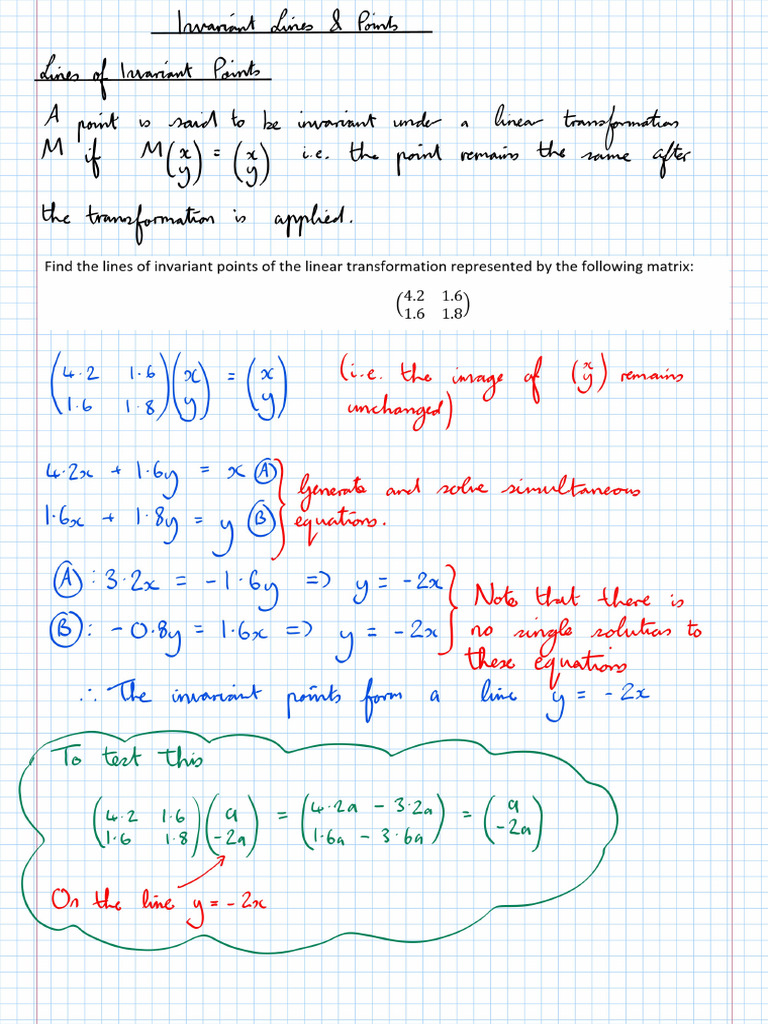 Invariant Lines & Points
Lines of Invariant Points
A point is said to be invariant under a linear transformation
M if M(x y) = (x y) i.e. the point remains the same after
the transformation is applied.
Find the lines of invariant points of the linear transformation represented by the following matrix:
(4.2 1.6
1.6 1.8)
(4.2 1.6
1.6 1.8)(x y) = (x y) (i.e. the image of (x y) remains
unchanged)
4.2x + 1.6y = x Ⓐ
1.6x + 1.8y = y Ⓑ
Generate and solve simultaneous
equations.
Ⓐ: 3.2x = -1.6y => y = -2x
Ⓑ: -0.8y = 1.6x => y = -2x
Note that there is
no single solution to
these equations
∴ The invariant points form a line y = -2x
To test this
(4.2 1.6
1.6 1.8)(a -2a) = (4.2a - 3.2a
1.6a - 3.6a) = (a -2a)
On the line y = -2x